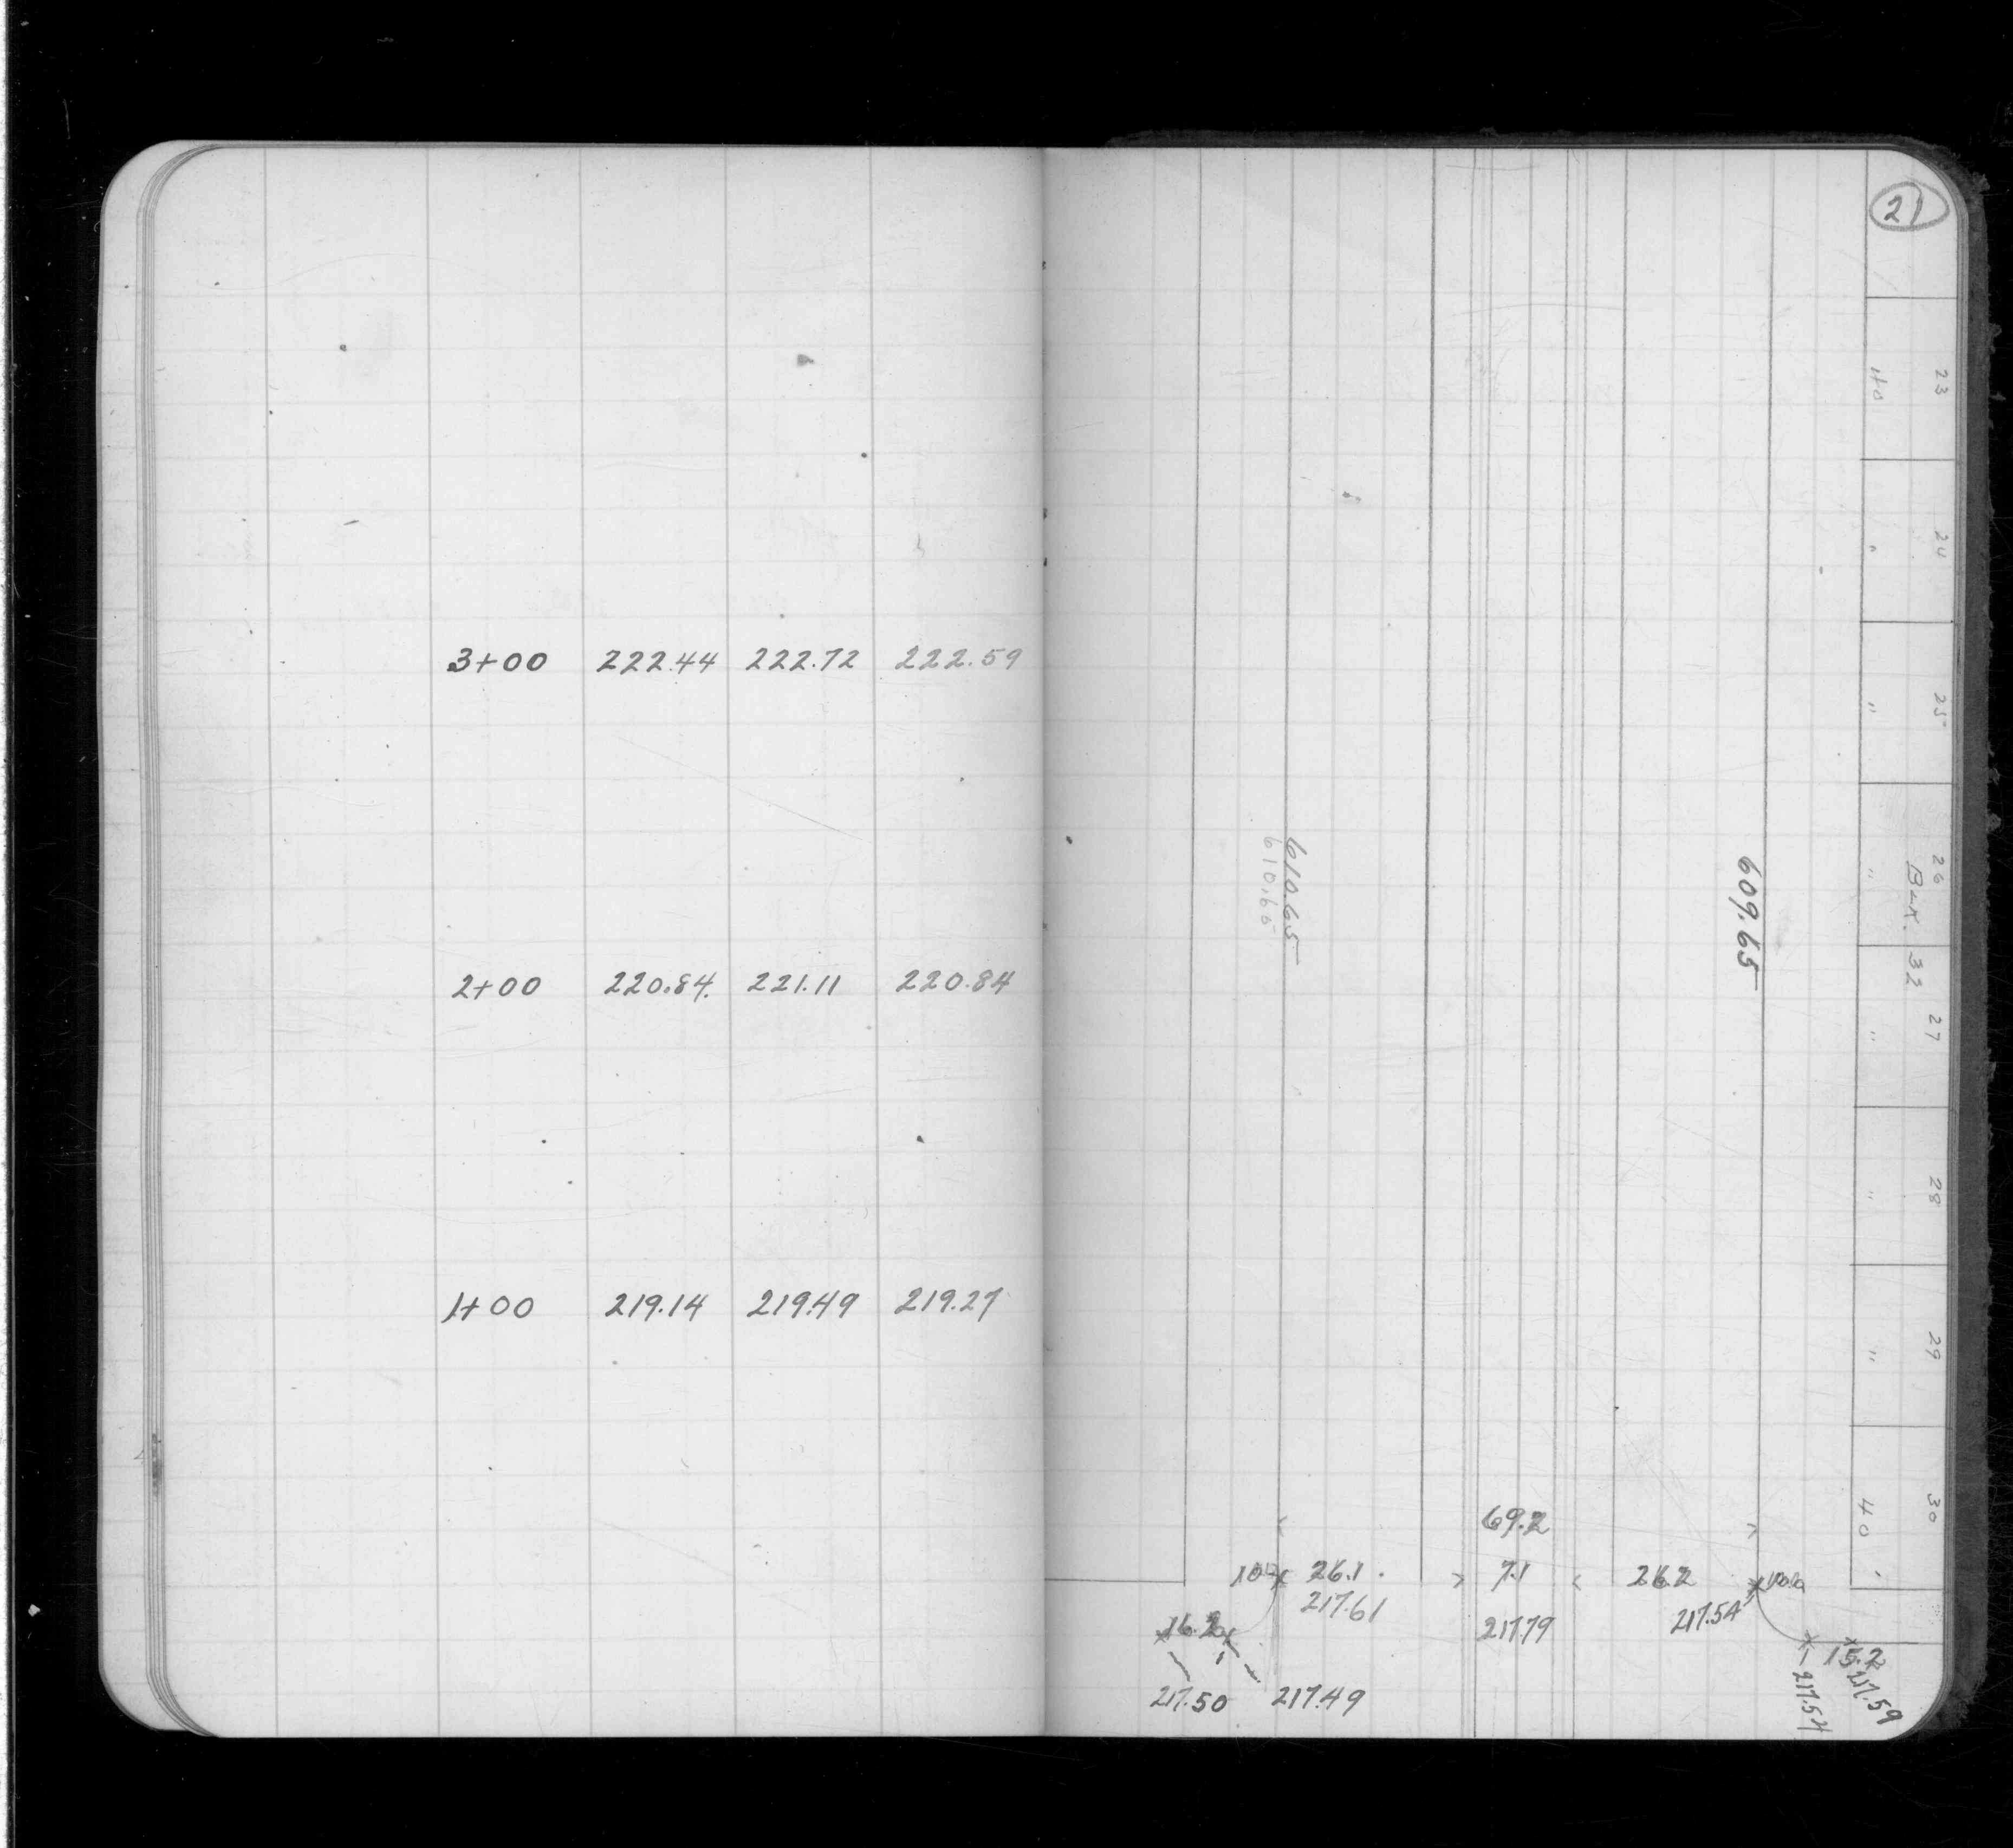 3+00 222.44 222.72 222.59
2+00 220.84 221.11 220.84
1+00 219.14 219.49 219.27
21
23
40
24
"
25
"
26
"
Blk. 32
27
"
28
"
29
"
30
40
610.65
609.65
69.2
26.1 7.1 26.2
217.61 217.79 217.54
16.2
217.50 217.49
15.2
217.54
217.59